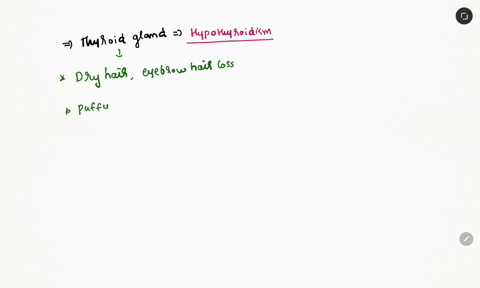 ⇒ Thyroid gland ⇒ Hypothyroidism
↓
* Dry hair, eyebrow hair loss
* Puffu